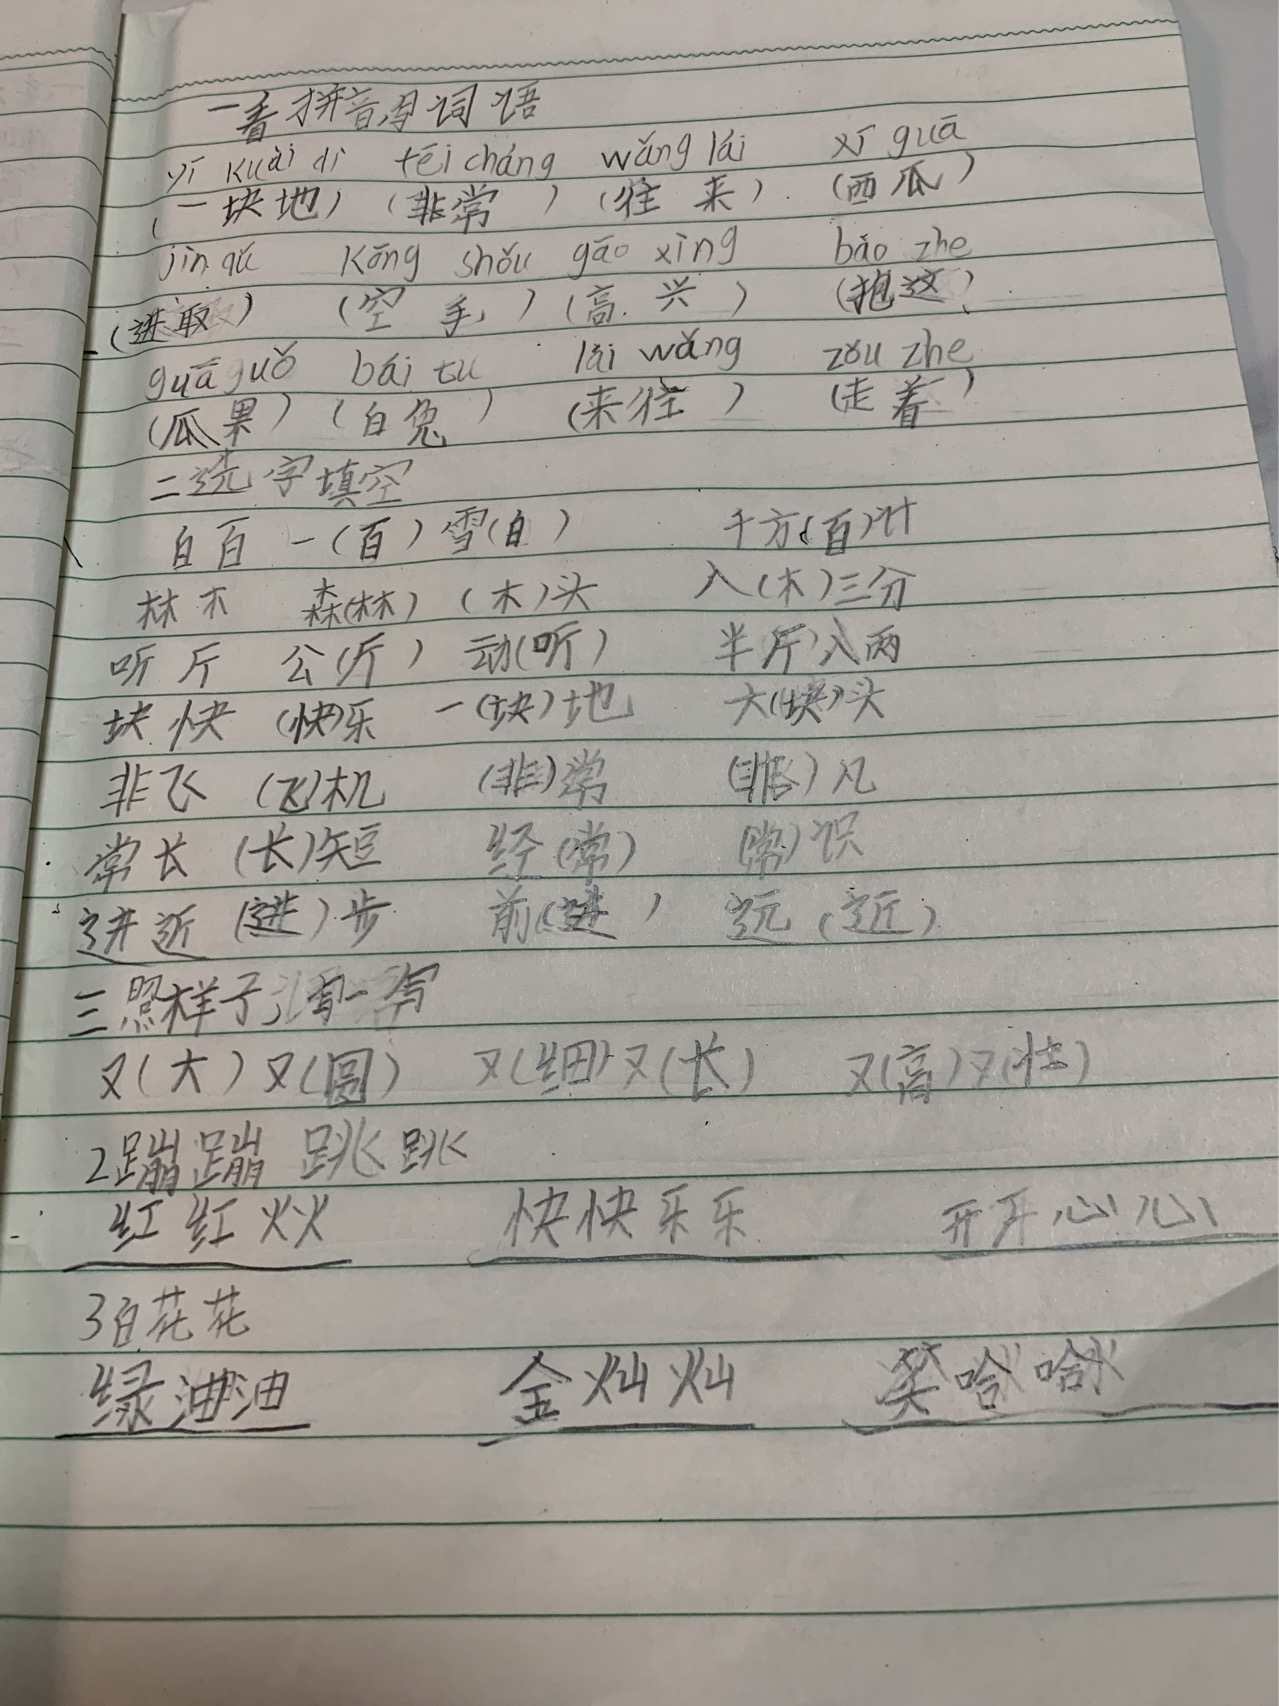 一看拼音写词语
yī kuài dì tēi cháng wǎng lái xī guā
(一块地) (非常) (往来) (西瓜)
jìn qǔ kōng shǒu gāo xìng bào zhe
(进取) (空手) (高兴) (抱这)
guā guǒ bái tu lái wǎng zǒu zhe
(瓜果) (白兔) (来往) (走着)
二选字填空
白百 一(百) 雪(白) 千方(百)计
林木 森(林) (木)头 入(木)三分
听斤 公(斤) 动(听) 半斤八两
块快 (快)乐 一(块)地 大(块)头
非飞 (飞)机 (非)常 (非)凡
常长 (长)短 经(常) (常)识
进近 (进)步 前(进) 远(近)
三照样子,写一写
又(大)又(圆) 又(细)又(长) 又(高)又(壮)
2蹦蹦跳跳
红红火火 快快乐乐 开开心心
3白花花
绿油油 金灿灿 笑哈哈